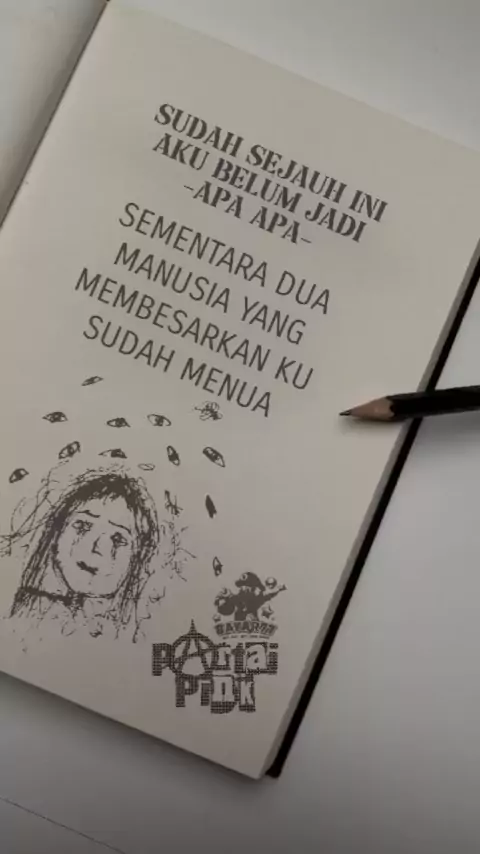 SUDAH SEJAUH INI
AKU BELUM JADI
-APA APA-
SEMENTARA DUA
MANUSIA YANG
MEMBESARKAN KU
SUDAH MENUA
PARtai
PiNK